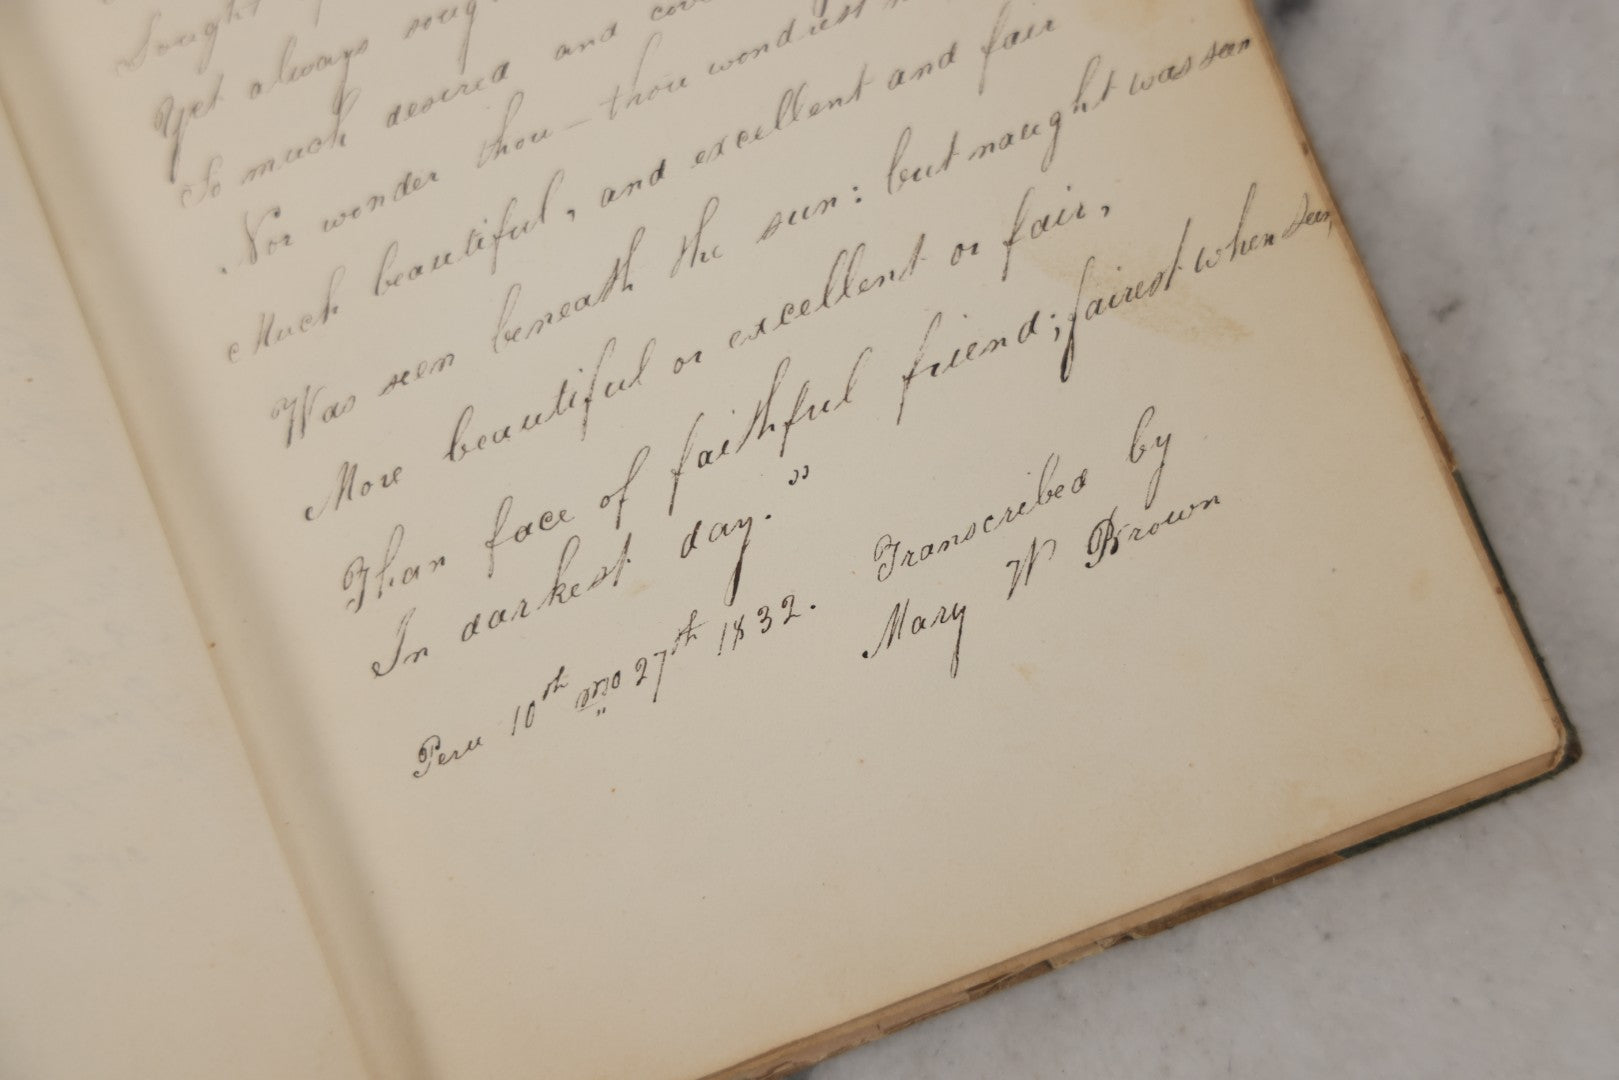 Sought
Yet always
So much desired and
Nor wonder thou – thou wondrest
Much beautiful, and excellent and fair
Was seen beneath the sun: but naught was seen
More beautiful or excellent or fair,
Than face of faithful friend; fairest when seen,
In darkest day."
Peru 10th mo 27th 1832. Transcribed by
Mary W Brown